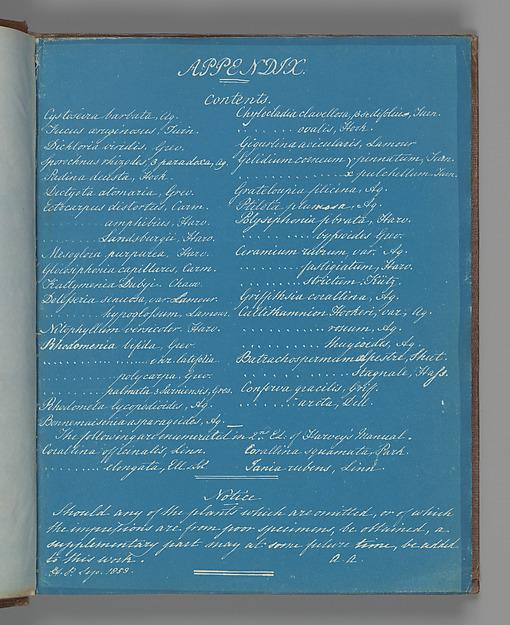 APPENDIX.
Contents.
Cystoseira barbata, Ag.
Fucus
Dichloria viridis, Grev.
Sporochnus rhizodes, β paradoxa, Ag.
Padina deusta, Hook.
Dictyota atomaria, Grev.
Ectocarpus distortus, Carm.
........ amphibius, Harv.
........ Landsburgii, Harv.
Mesogloia purpurea, Harv.
Gloiosiphonia capillaris, Carm.
Kallymenia Dubyi. Chauv.
Delesseria sinuosa, var. Lamour.
........ hypoglossum, Lamour.
Nitophyllum versicolor. Harv.
Rhodomenia bifida, Grev.
........ var. latifolia.
........ polycarpa, Grev.
........ palmata β Sarniensis, Grev.
Rhodomela lycopodioides, Ag.
Bonnemaisonia asparagoides, Ag.
Chylocladia clavellosa,
........ ovalis, Hook.
Gigartina acicularis, Lamour
Gelidium corneum γ pinnatum, Turn.
........ pulchellum. Turn.
Grateloupia filicina, Ag.
Ptilota plumosa, Ag.
Polysiphonia fibrata, Harv.
........ byssoides Grev.
Ceramium rubrum, var. Ag.
........ fastigiatum, Harv.
........ strictum, Kütz.
Griffithsia corallina, Ag.
Callithamnion Hookeri, var, Ag.
........ roseum, Ag.
........ thuyoides, Ag.
Batrachospermum
........ Stagnale, Hass.
Conferva gracilis,
........ arcta, Dill.
The following are enumerated in 2nd Ed. of Harvey's Manual.
Corallina officinalis, Linn.
........ elongata, Ell. & S.
Corallina squamata, Park.
Jania rubens, Linn
Notice
Should any of the plants which are omitted, or of which
the impressions are from poor specimens, be obtained, a
supplementary part may at some future time, be added
to this work. A. A.
H. P. Sep. 1853.